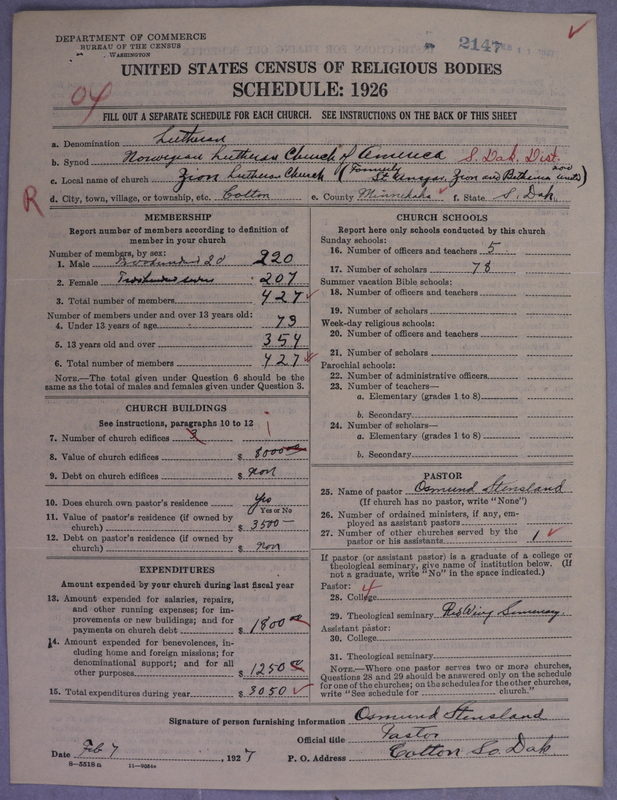 DEPARTMENT OF COMMERCE
BUREAU OF THE CENSUS
WASHINGTON
2147
UNITED STATES CENSUS OF RELIGIOUS BODIES
SCHEDULE: 1926
04
FILL OUT A SEPARATE SCHEDULE FOR EACH CHURCH. SEE INSTRUCTIONS ON THE BACK OF THIS SHEET
a. Denomination Lutheran
b. Synod Norwegian Lutheran Church of America S. Dak. Dist.
c. Local name of church Zion Lutheran Church (Formerly St Ansgar, Zion and Bethania now united)
R
d. City, town, village, or township, etc. Colton e. County Minnehaha f. State S. Dak.
MEMBERSHIP
Report number of members according to definition of
member in your church
Number of members, by sex:
1. Male Twohundred 20 220
2. Female Twohundred seven 207
3. Total number of members 427
Number of members under and over 13 years old:
4. Under 13 years of age 73
5. 13 years old and over 354
6. Total number of members 427
NOTE.—The total given under Question 6 should be the
same as the total of males and females given under Question 3.
CHURCH BUILDINGS
See instructions, paragraphs 10 to 12
7. Number of church edifices 3 1
8. Value of church edifices $ 8000
9. Debt on church edifices $ non
10. Does church own pastor's residence yes
Yes or No
11. Value of pastor's residence (if owned by
church) $ 3500—
12. Debt on pastor's residence (if owned by
church) $ non
EXPENDITURES
Amount expended by your church during last fiscal year
13. Amount expended for salaries, repairs,
and other running expenses; for im-
provements or new buildings; and for
payments on church debt $ 1800
14. Amount expended for benevolences, in-
cluding home and foreign missions; for
denominational support; and for all
other purposes $ 1250
15. Total expenditures during year $ 3050
CHURCH SCHOOLS
Report here only schools conducted by this church
Sunday schools:
16. Number of officers and teachers 5
17. Number of scholars 78
Summer vacation Bible schools:
18. Number of officers and teachers
19. Number of scholars
Week-day religious schools:
20. Number of officers and teachers
21. Number of scholars
Parochial schools:
22. Number of administrative officers
23. Number of teachers—
a. Elementary (grades 1 to 8)
b. Secondary
24. Number of scholars—
a. Elementary (grades 1 to 8)
b. Secondary
PASTOR
25. Name of pastor Osmund Stensland
(If church has no pastor, write "None")
26. Number of ordained ministers, if any, em-
ployed as assistant pastors
27. Number of other churches served by the
pastor or his assistants 1
If pastor (or assistant pastor) is a graduate of a college or
theological seminary, give name of institution below. (If
not a graduate, write "No" in the space indicated.)
Pastor: 4
28. College
29. Theological seminary Red Wing Seminary
Assistant pastor:
30. College
31. Theological seminary
NOTE.—Where one pastor serves two or more churches,
Questions 28 and 29 should be answered only on the schedule
for one of the churches; on the schedules for the other churches,
write "See schedule for church."
Signature of person furnishing information Osmund Stensland
Official title Pastor
Date Feb 7, 1927 P. O. Address Colton So. Dak
8—5518a 11—9264